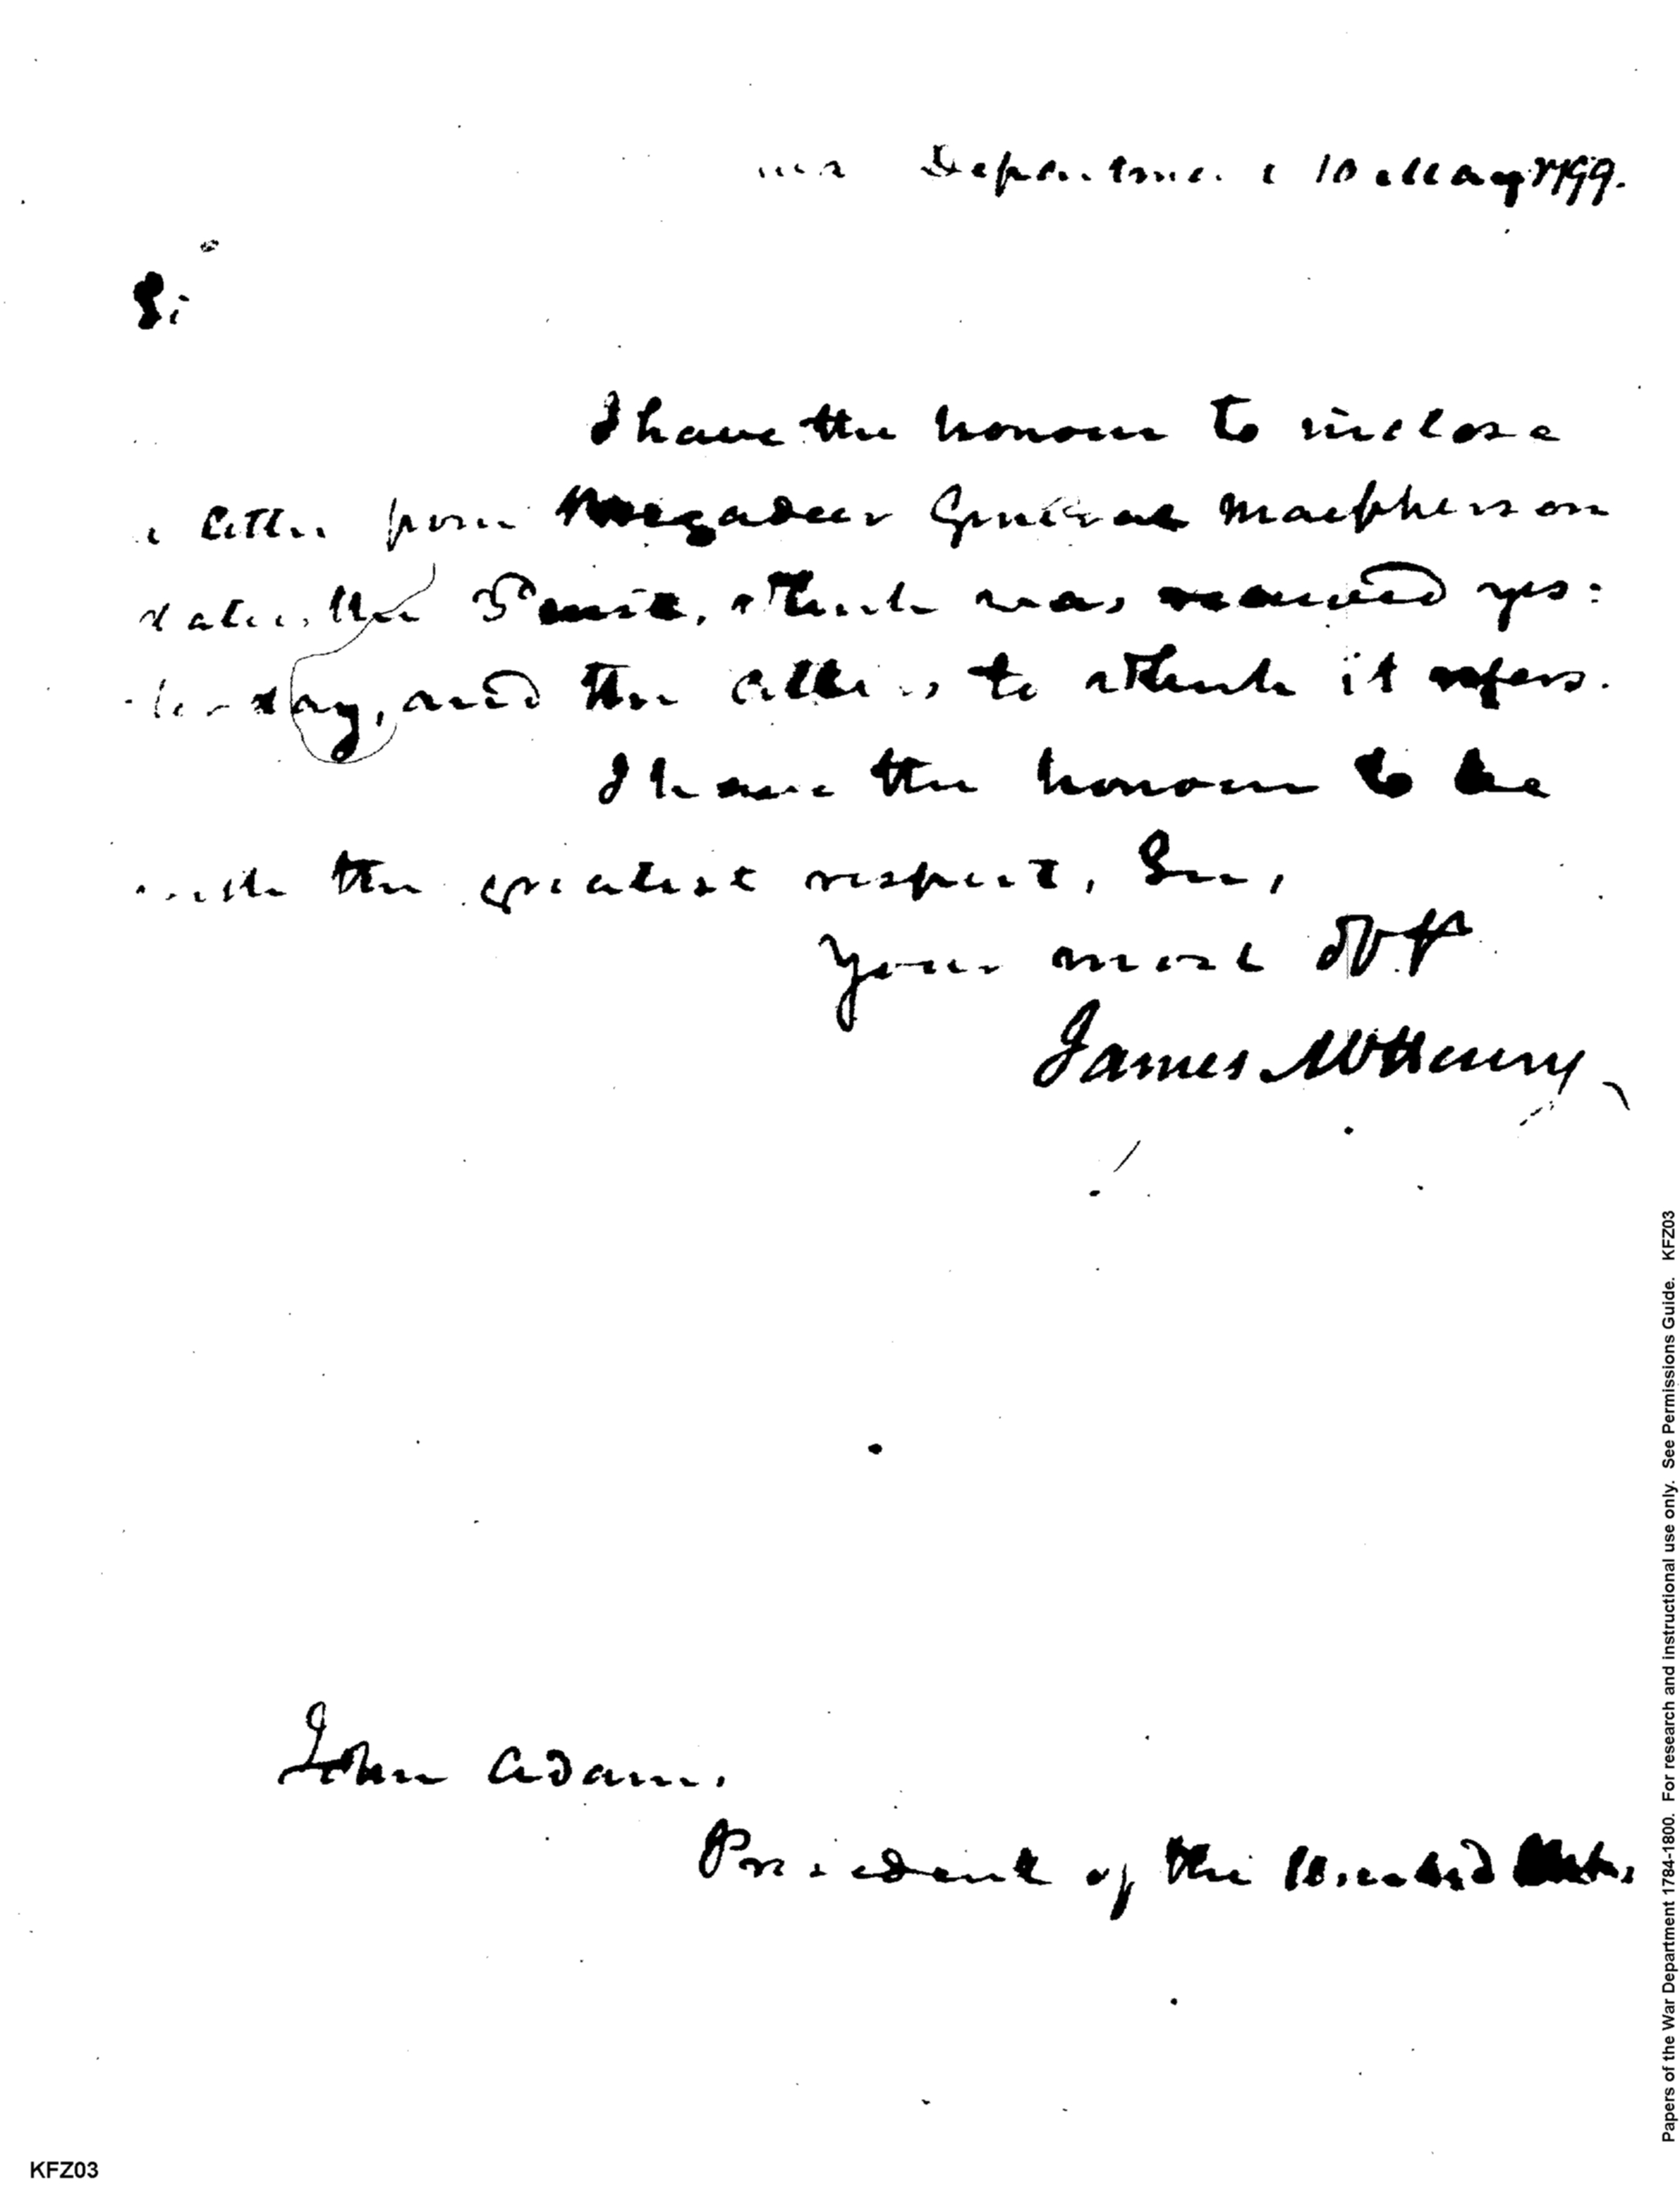 War Department 10 May 1799.
Sir
I have the honour to inclose
a letter from Brigadeer General Macpherson
dated the inst, which was received yes:
terday, and the letters to which it refers.
I have the honour to be
with the greatest respect, Sir,
Your most Obt
James McHenry
John Adams
President of the United States
Papers of the War Department 1784-1800. For research and instructional use only. See Permissions Guide. KFZ03
KFZ03